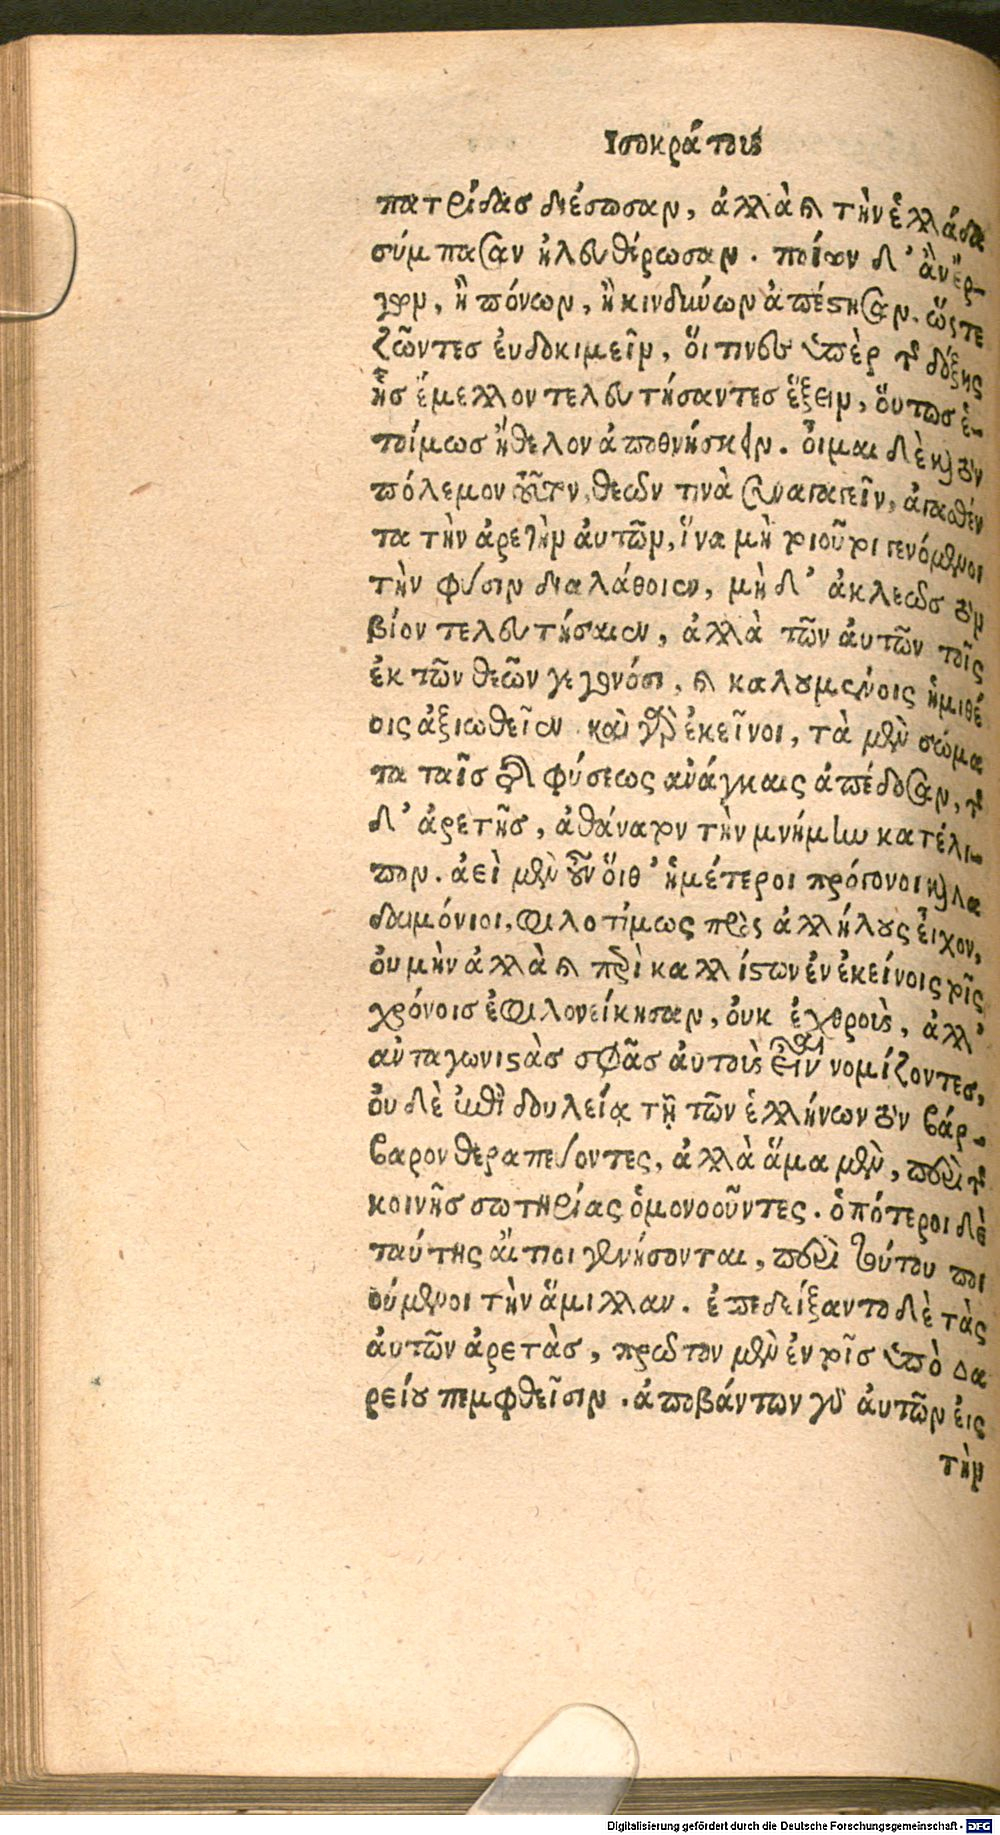 Ισοκράτους
πατρίδας διέσωσαν, ἀλλὰ καὶ τὴν ἑλλάδα
σύμπασαν ἠλευθέρωσαν. ποίων δ' ἂν ἔρ-
γων, ἢ πόνων, ἢ κινδύνων ἀπέστησαν. ὥστε
ζῶντες ἐυδοκιμεῖν, ὅιτινες ὑπὲρ τῆς δόξης
ἧς ἔμελλον τελευτήσαντες ἕξειν, ὅυτως ἑ-
τοίμως ἤθελον ἀποθνήσκειν. ὀ͂ιμαι δὲ καὶ τὸν
πόλεμον τοῦτον, θεῶν τινὰ συναγαγεῖν, ἀγασθέν
τα τὴν ἀρετὴν ἀυτῶν, ἵνα μὴ τοιοῦτοι γενόμενοι
τὴν φύσιν διαλάθοιεν, μὴ δ' ἀκλεῶς τὸν
βίον τελευτήσαιεν, ἀλλὰ τῶν ἀυτῶν τοῖς
ἐκ τῶν θεῶν γεγονόσι, καὶ καλουμένοις ἡμιθέ
οις ἀξιωθεῖεν καὶ γὰρ ἐκεῖνοι, τὰ μὲν σώμα
τα ταῖς τῆς φύσεως ἀνάγκαις ἀπέδοσαν, τῆς
δ' ἀρετῆς, ἀθάνατον τὴν μνήμην κατέλι-
πον. ἀεὶ μὲν οὖν ὅιθ' ἡμέτεροι πρόγονοι καὶ λα
δαιμόνιοι, φιλοτίμως πρὸς ἀλλήλους ἐ͂ιχον,
ὀυ μὴν ἀλλὰ καὶ περὶ καλλίστων ἐν ἐκείνοις τοῖς
χρόνοις ἐφιλονείκησαν, ὀυκ ἐχθροὺς, ἀλλ'
ἀνταγωνιστὰς σφᾶς ἀυτοὺς εἶναι νομίζοντες,
ὀυδὲ ἐπὶ δουλείᾳ τῇ τῶν ἑλλήνων τὸν βάρ-
βαρον θεραπεύοντες, ἀλλὰ ἅμα μὲν, περὶ τῆς
κοινῆς σωτηρίας ὁμονοοῦντες. ὁπότεροι δὲ
ταύτης ἄιτιοι γενήσονται, περὶ τούτου ποι
ούμενοι τὴν ἅμιλλαν. ἐπεδείξαντο δὲ τὰς
ἀυτῶν ἀρετὰς, πρῶτον μὲν ἐν τοῖς ὑπὸ Δα
ρείου πεμφθεῖσιν. ἀποβάντων γὰρ ἀυτῶν ἐις
τὴν
Digitalisierung gefördert durch die Deutsche Forschungsgemeinschaft - DFG